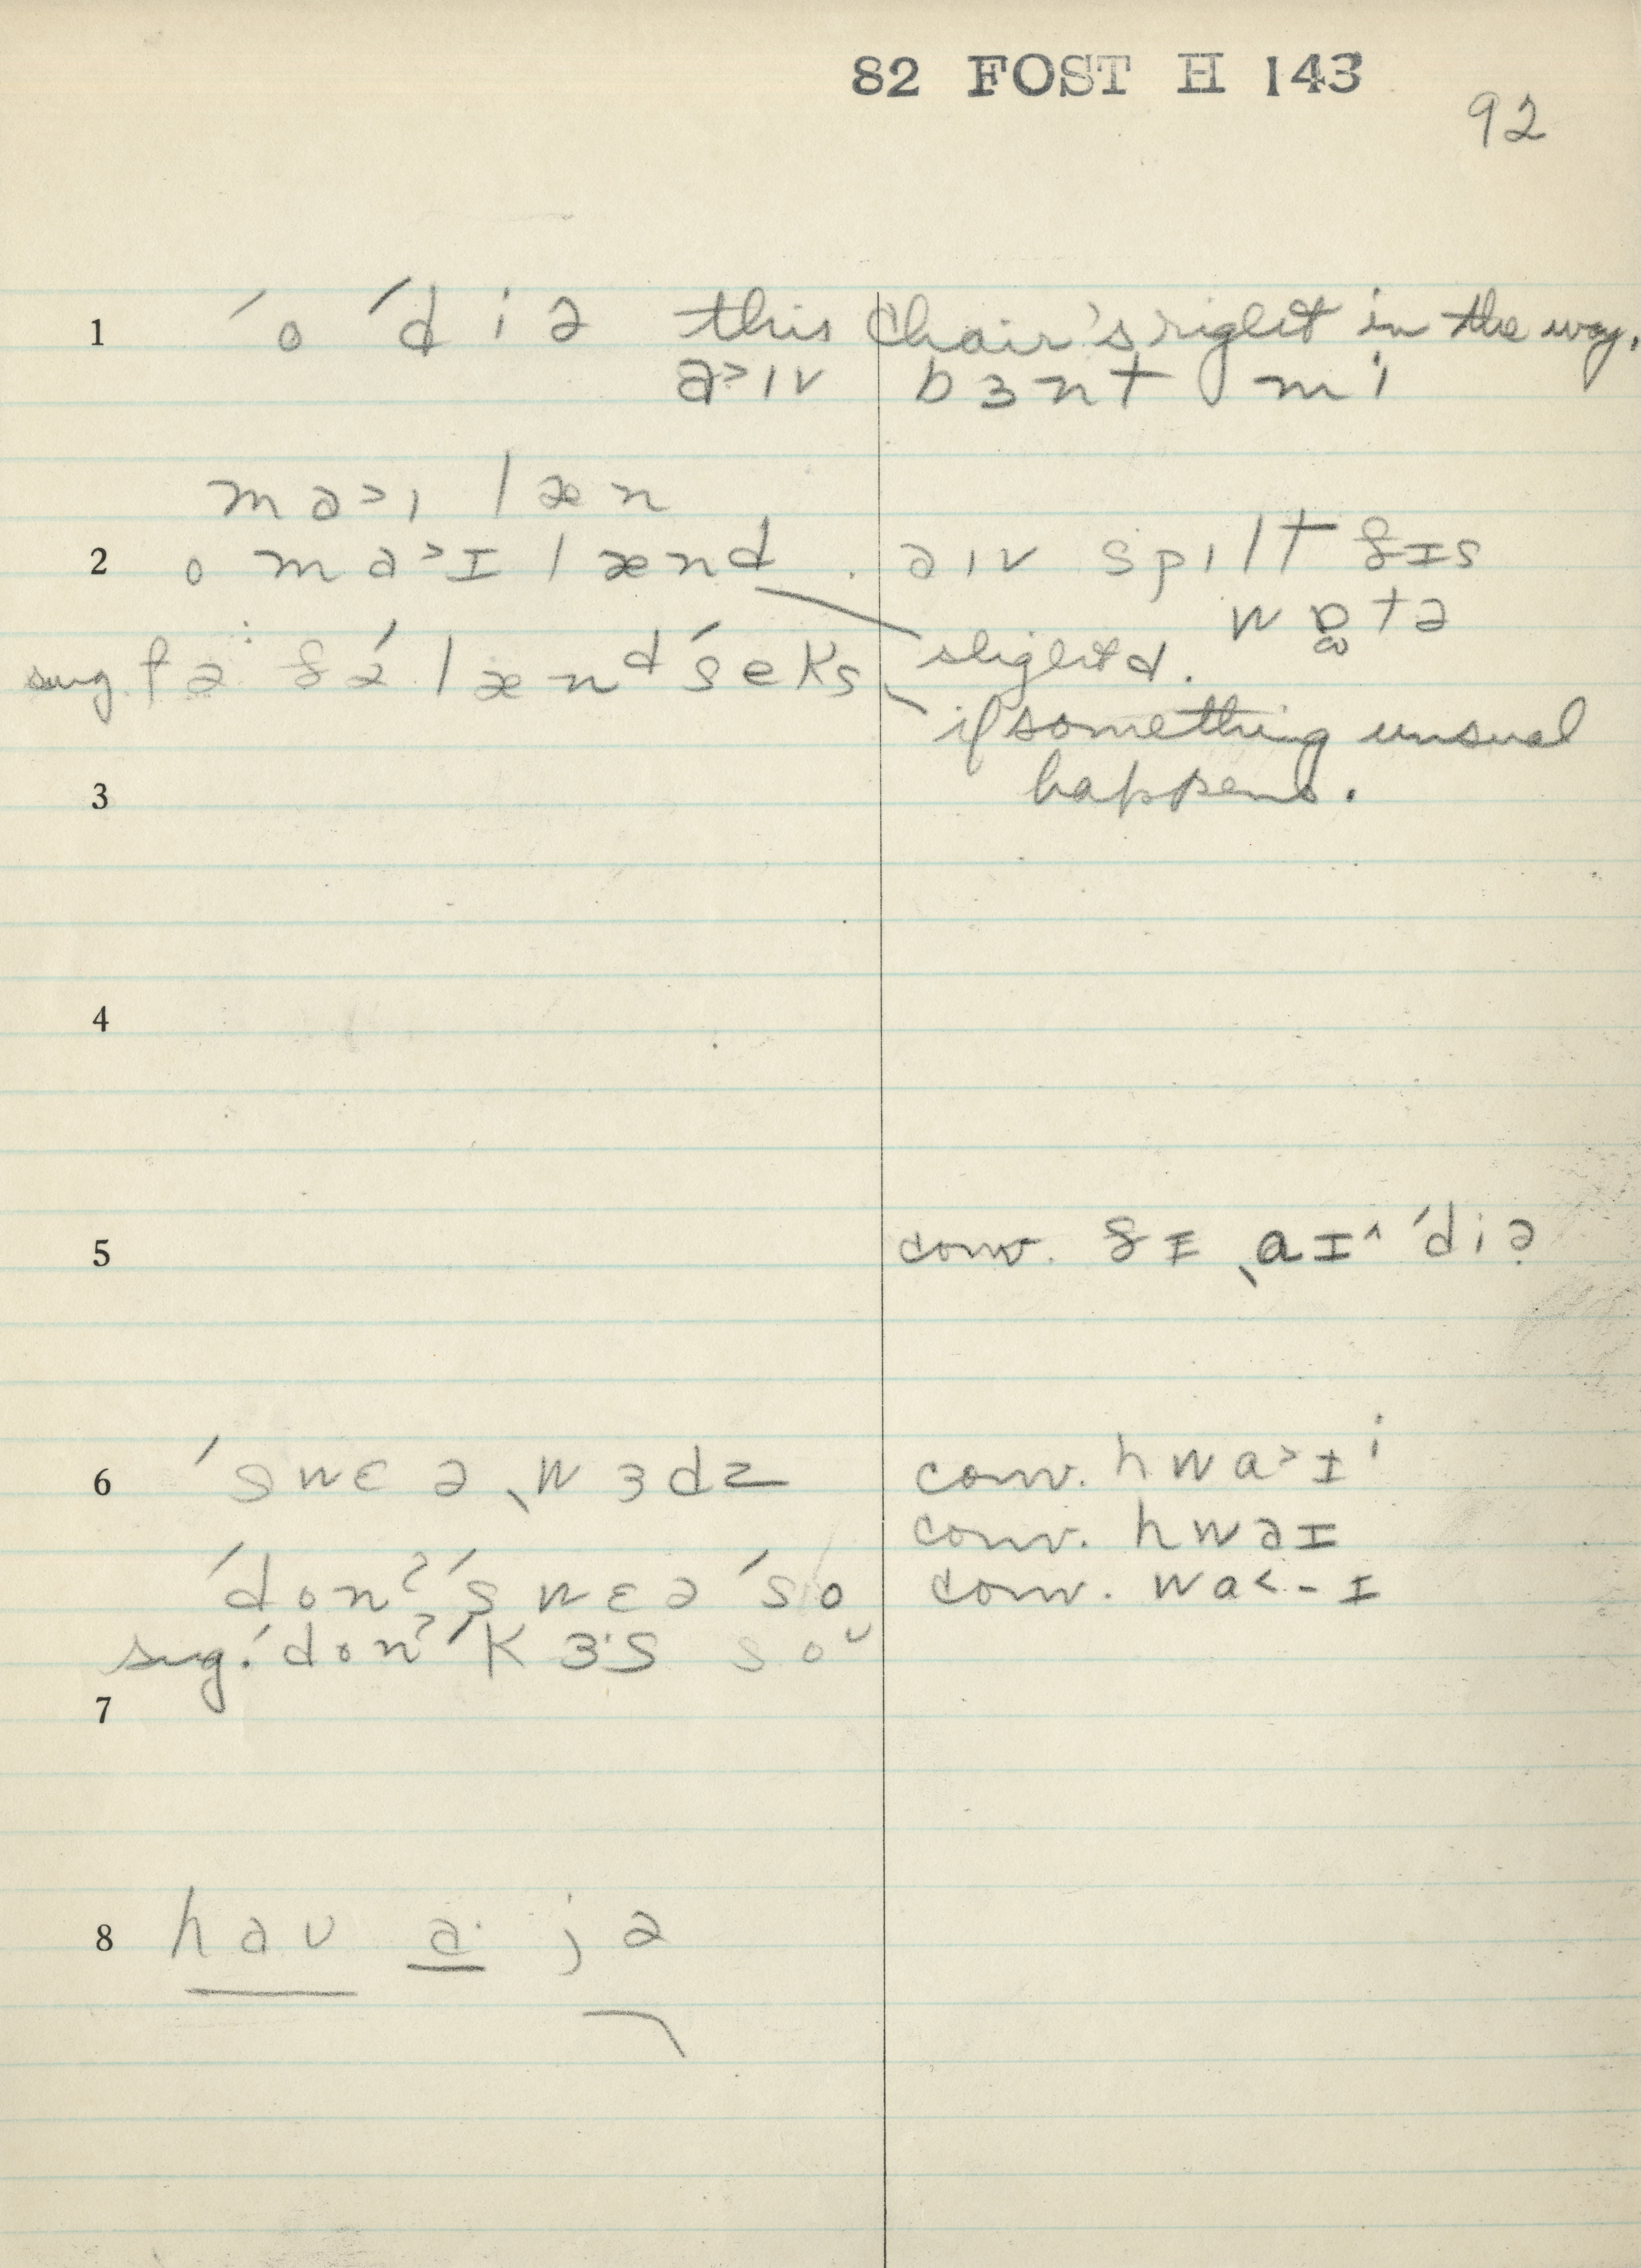 82 FOST H 143
92
1 ˊo ˊdiə this chair's right in the way.
a>ɪv bɜnt mi
ma>ɪ læn
2 o ma>ɪ lænd . aɪv spɪlt ðɪs
wɒtə
sug. fə· ðə́ lænᵈ ˊseks slight d.
if something unusual
3 happens.
4
5 conv. ðɪ ˎaɪ^ ˊdiə
6 ˊswɛə ˎwɜdz conv. hwa>ɪⁱ
conv. hwaɪ
ˊdonˀ ˊswɛə ˊso conv. wa<-ɪ
sug. ˊdonˀ ˊkɜ·s soᵘ
7
8 haʊ a· jə